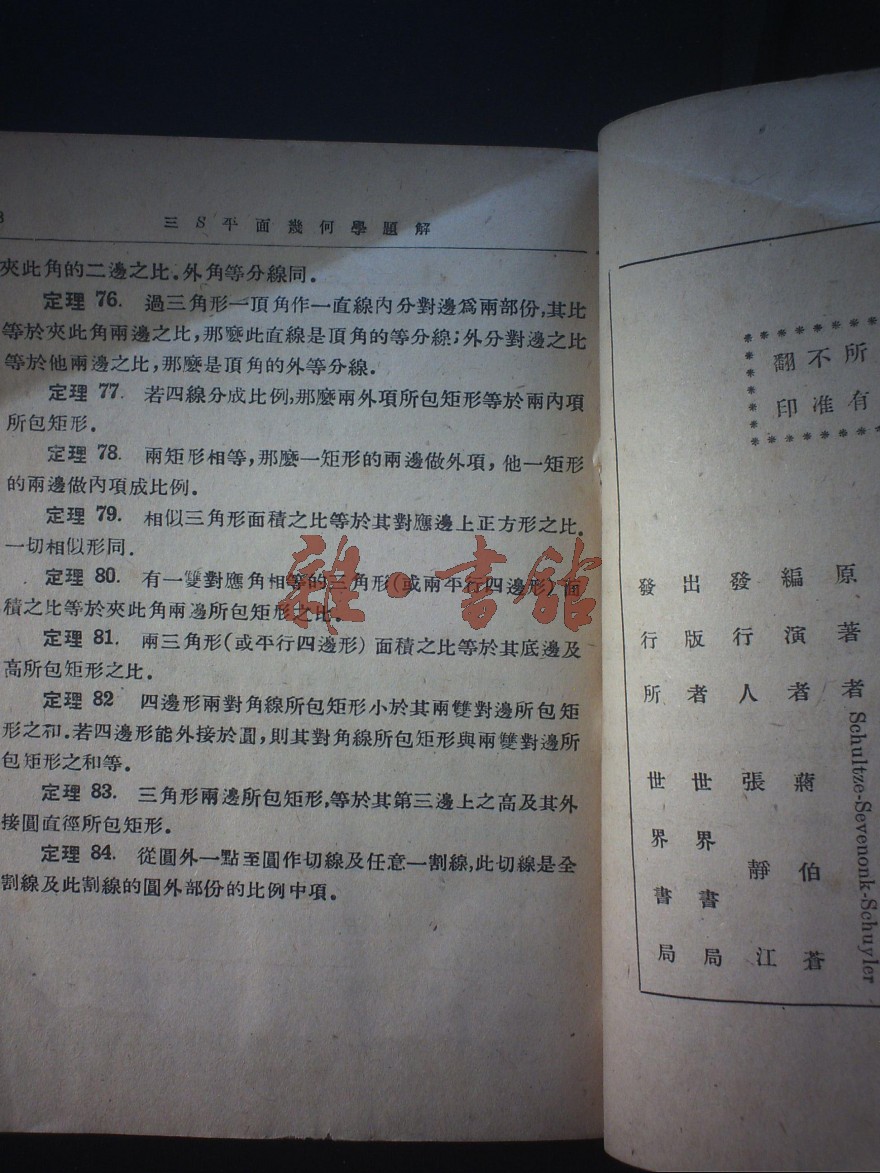 8
三S平面幾何學題解
夾此角的二邊之比.外角等分線同。
定理 76. 過三角形一頂角作一直線內分對邊爲兩部份,其比
等於夾此角兩邊之比,那麼此直線是頂角的等分線;外分對邊之比
等於他兩邊之比,那麼是頂角的外等分線。
定理 77. 若四線分成比例,那麼兩外項所包矩形等於兩內項
所包矩形。
定理 78. 兩矩形相等,那麼一矩形的兩邊做外項,他一矩形
的兩邊做內項成比例.
定理 79. 相似三角形面積之比等於其對應邊上正方形之比.
一切相似形同.
定理 80. 有一雙對應角相等的三角形(或兩平行四邊形)面
積之比等於夾此角兩邊所包矩形之比.
定理 81. 兩三角形(或平行四邊形) 面積之比等於其底邊及
高所包矩形之比.
定理 82 四邊形兩對角線所包矩形小於其兩雙對邊所包矩
形之和.若四邊形能外接於圓,則其對角線所包矩形與兩雙對邊所
包矩形之和等。
定理 83. 三角形兩邊所包矩形,等於其第三邊上之高及其外
接圓直徑所包矩形。
定理 84. 從圓外一點至圓作切線及任意一割線,此切線是全
割線及此割線的圓外部份的比例中項。
雜·書舘
所有
不准
翻印
原著者 Schultze-Sevenonk-Schuyler
編演者 蔣伯蒼
發行人 張靜江
出版者 世界書局
發行所 世界書局